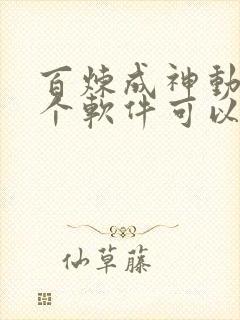 百煉成神動
个軟件可以
仙草藤